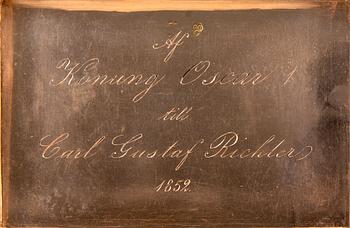 Af
Konung Oscar 1
till
Carl Gustaf Richter
1852.